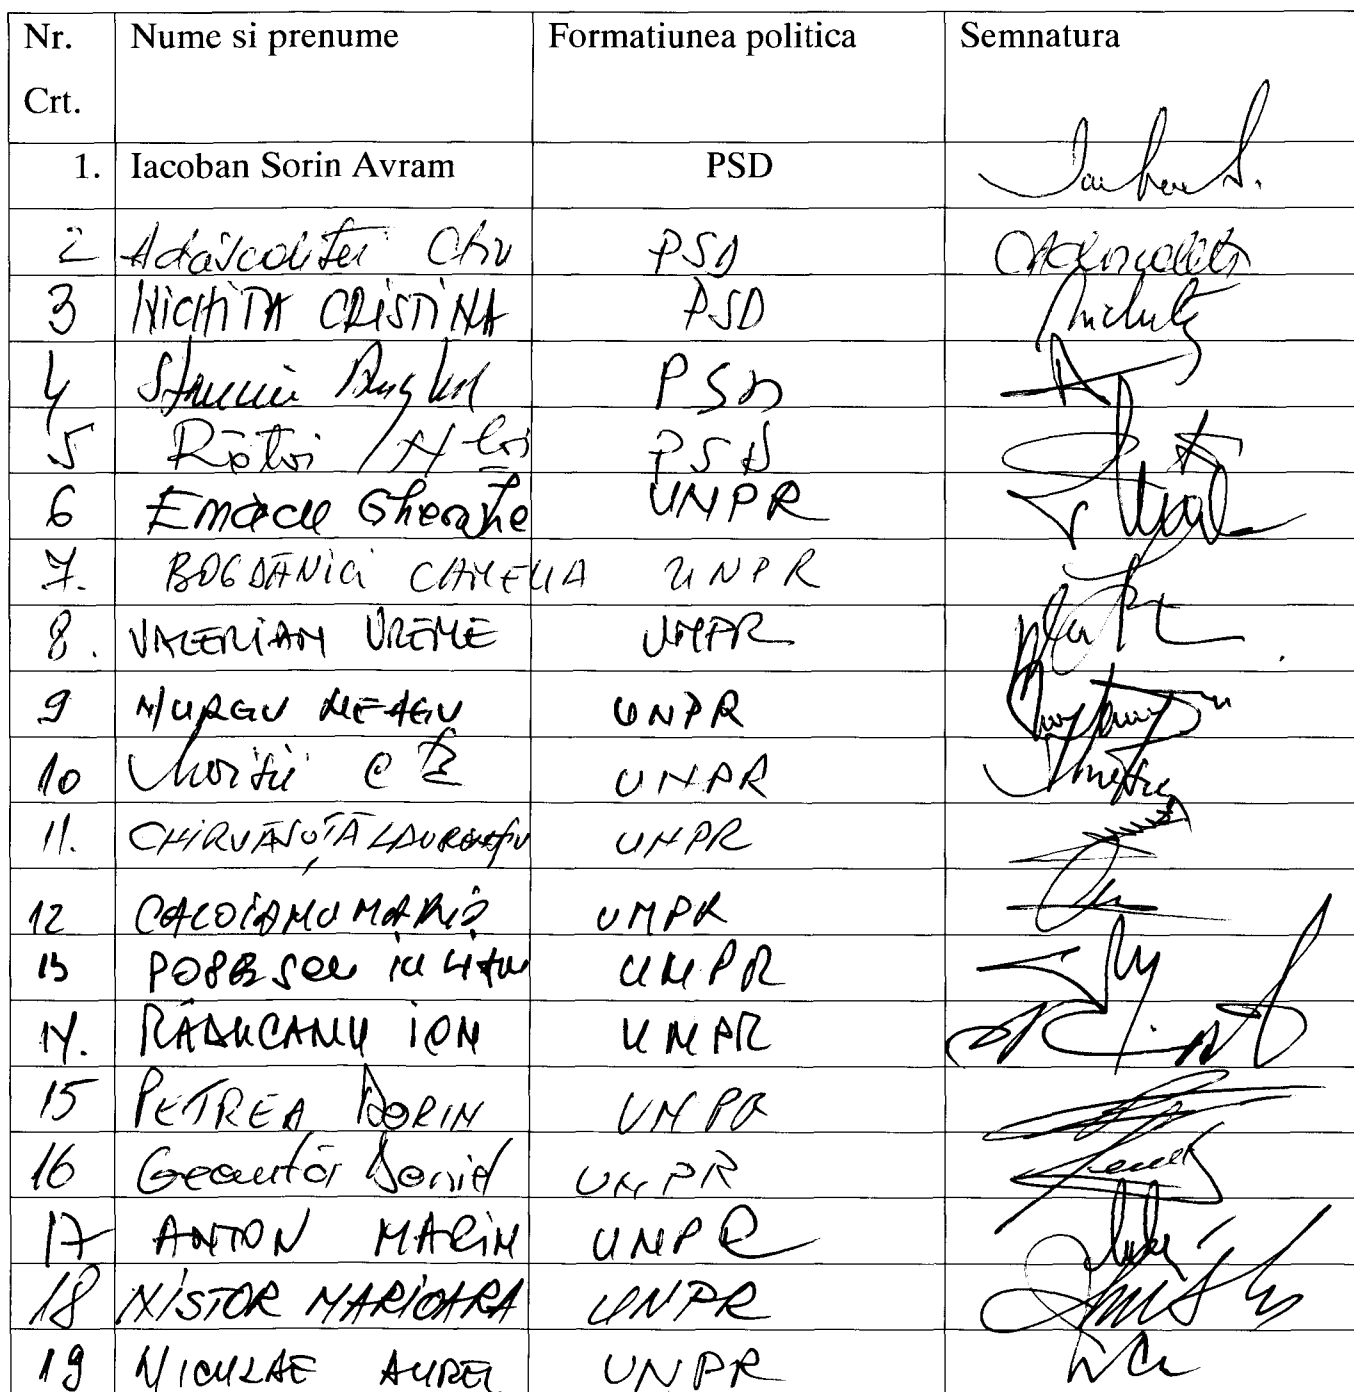 Nr. Crt. Nume si prenume Formatiunea politica Semnatura
1. Iacoban Sorin Avram PSD
2 Adăscaliței Ctin PSD
3 NICHITA CRISTINA PSD
4 Stanciu Anghel PSD
5 Rățoi PSD
6 Emacu Gheorghe UNPR
7. BOGDĂNICI CAMELIA UNPR
8. VALERIAN VREME UNPR
9 MURGU NEAGU UNPR
10 Moisii C UNPR
11. CHIRVĂSUȚĂ LAURENȚIU UNPR
12 CALOIANU MARIO UNPR
13 POPESCU IULIAN UNPR
14. RĂDUCANU ION UNPR
15 PETREA DORIN UNPR
16 Geantă Daniel UNPR
17 ANTON MARIN UNPR
18 NISTOR MARIOARA UNPR
19 NICULAE AUREL UNPR